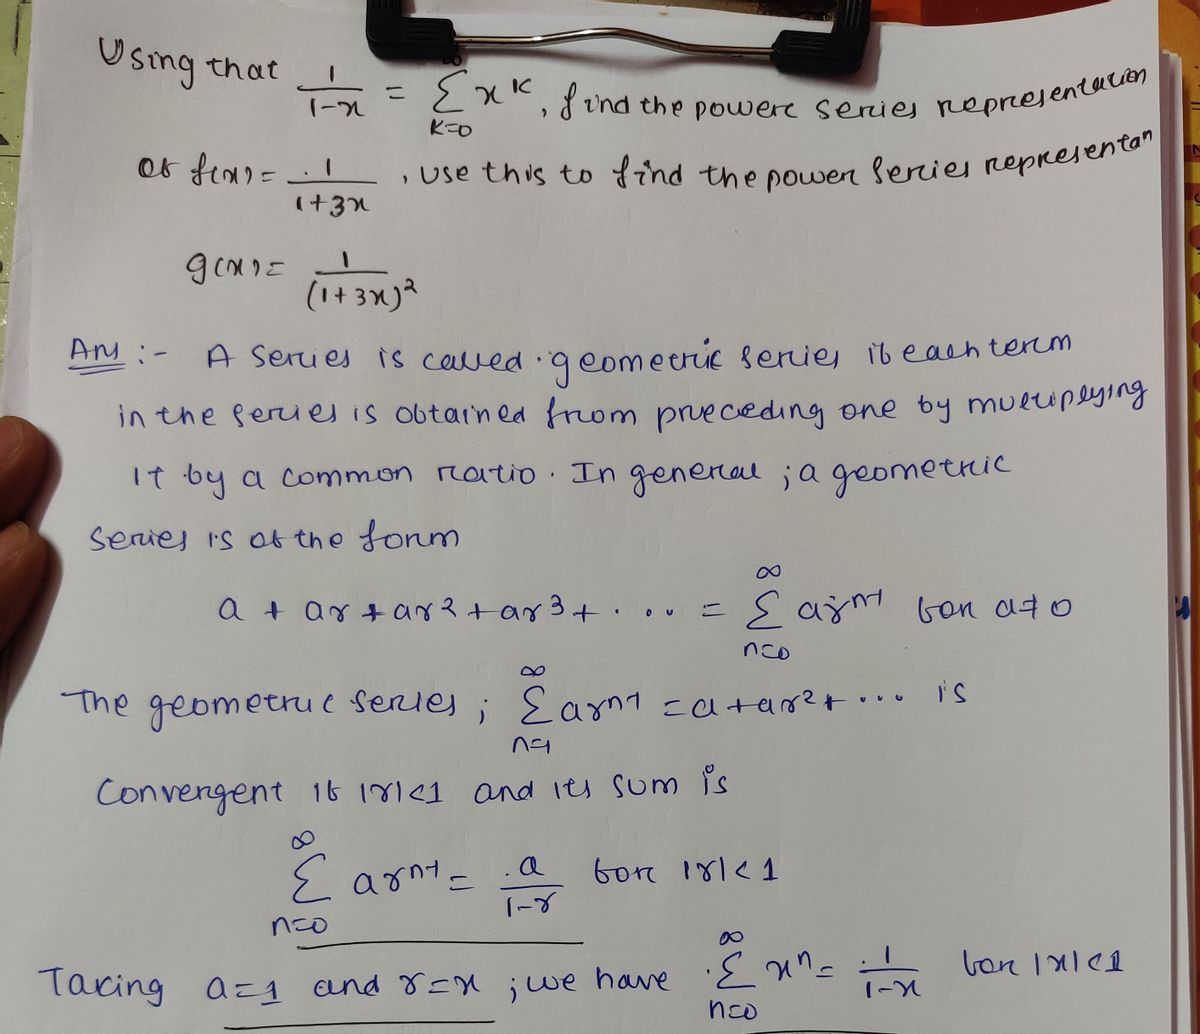 Using that 1/(1-x) = ∞ Σ k=0 x^k, find the power series representation
of f(x) = 1/(1+3x), use this to find the power series representan
g(x) = 1/(1+3x)²
Ans :- A series is called geometric series if each term
in the series is obtained from preceding one by multiplying
it by a common ratio. In general ; a geometric
series is of the form
a + ar + ar² + ar³ + .... = ∞ Σ n=0 ar^(n-1) for a≠0
The geometric series ; ∞ Σ n=1 ar^(n-1) = a + ar² + ... is
Convergent if |r|<1 and its sum is
∞ Σ n=0 ar^(n-1) = a/(1-r) for |r|<1
Taking a=1 and r=x ; we have ∞ Σ n=0 x^n = 1/(1-x) for |x|<1